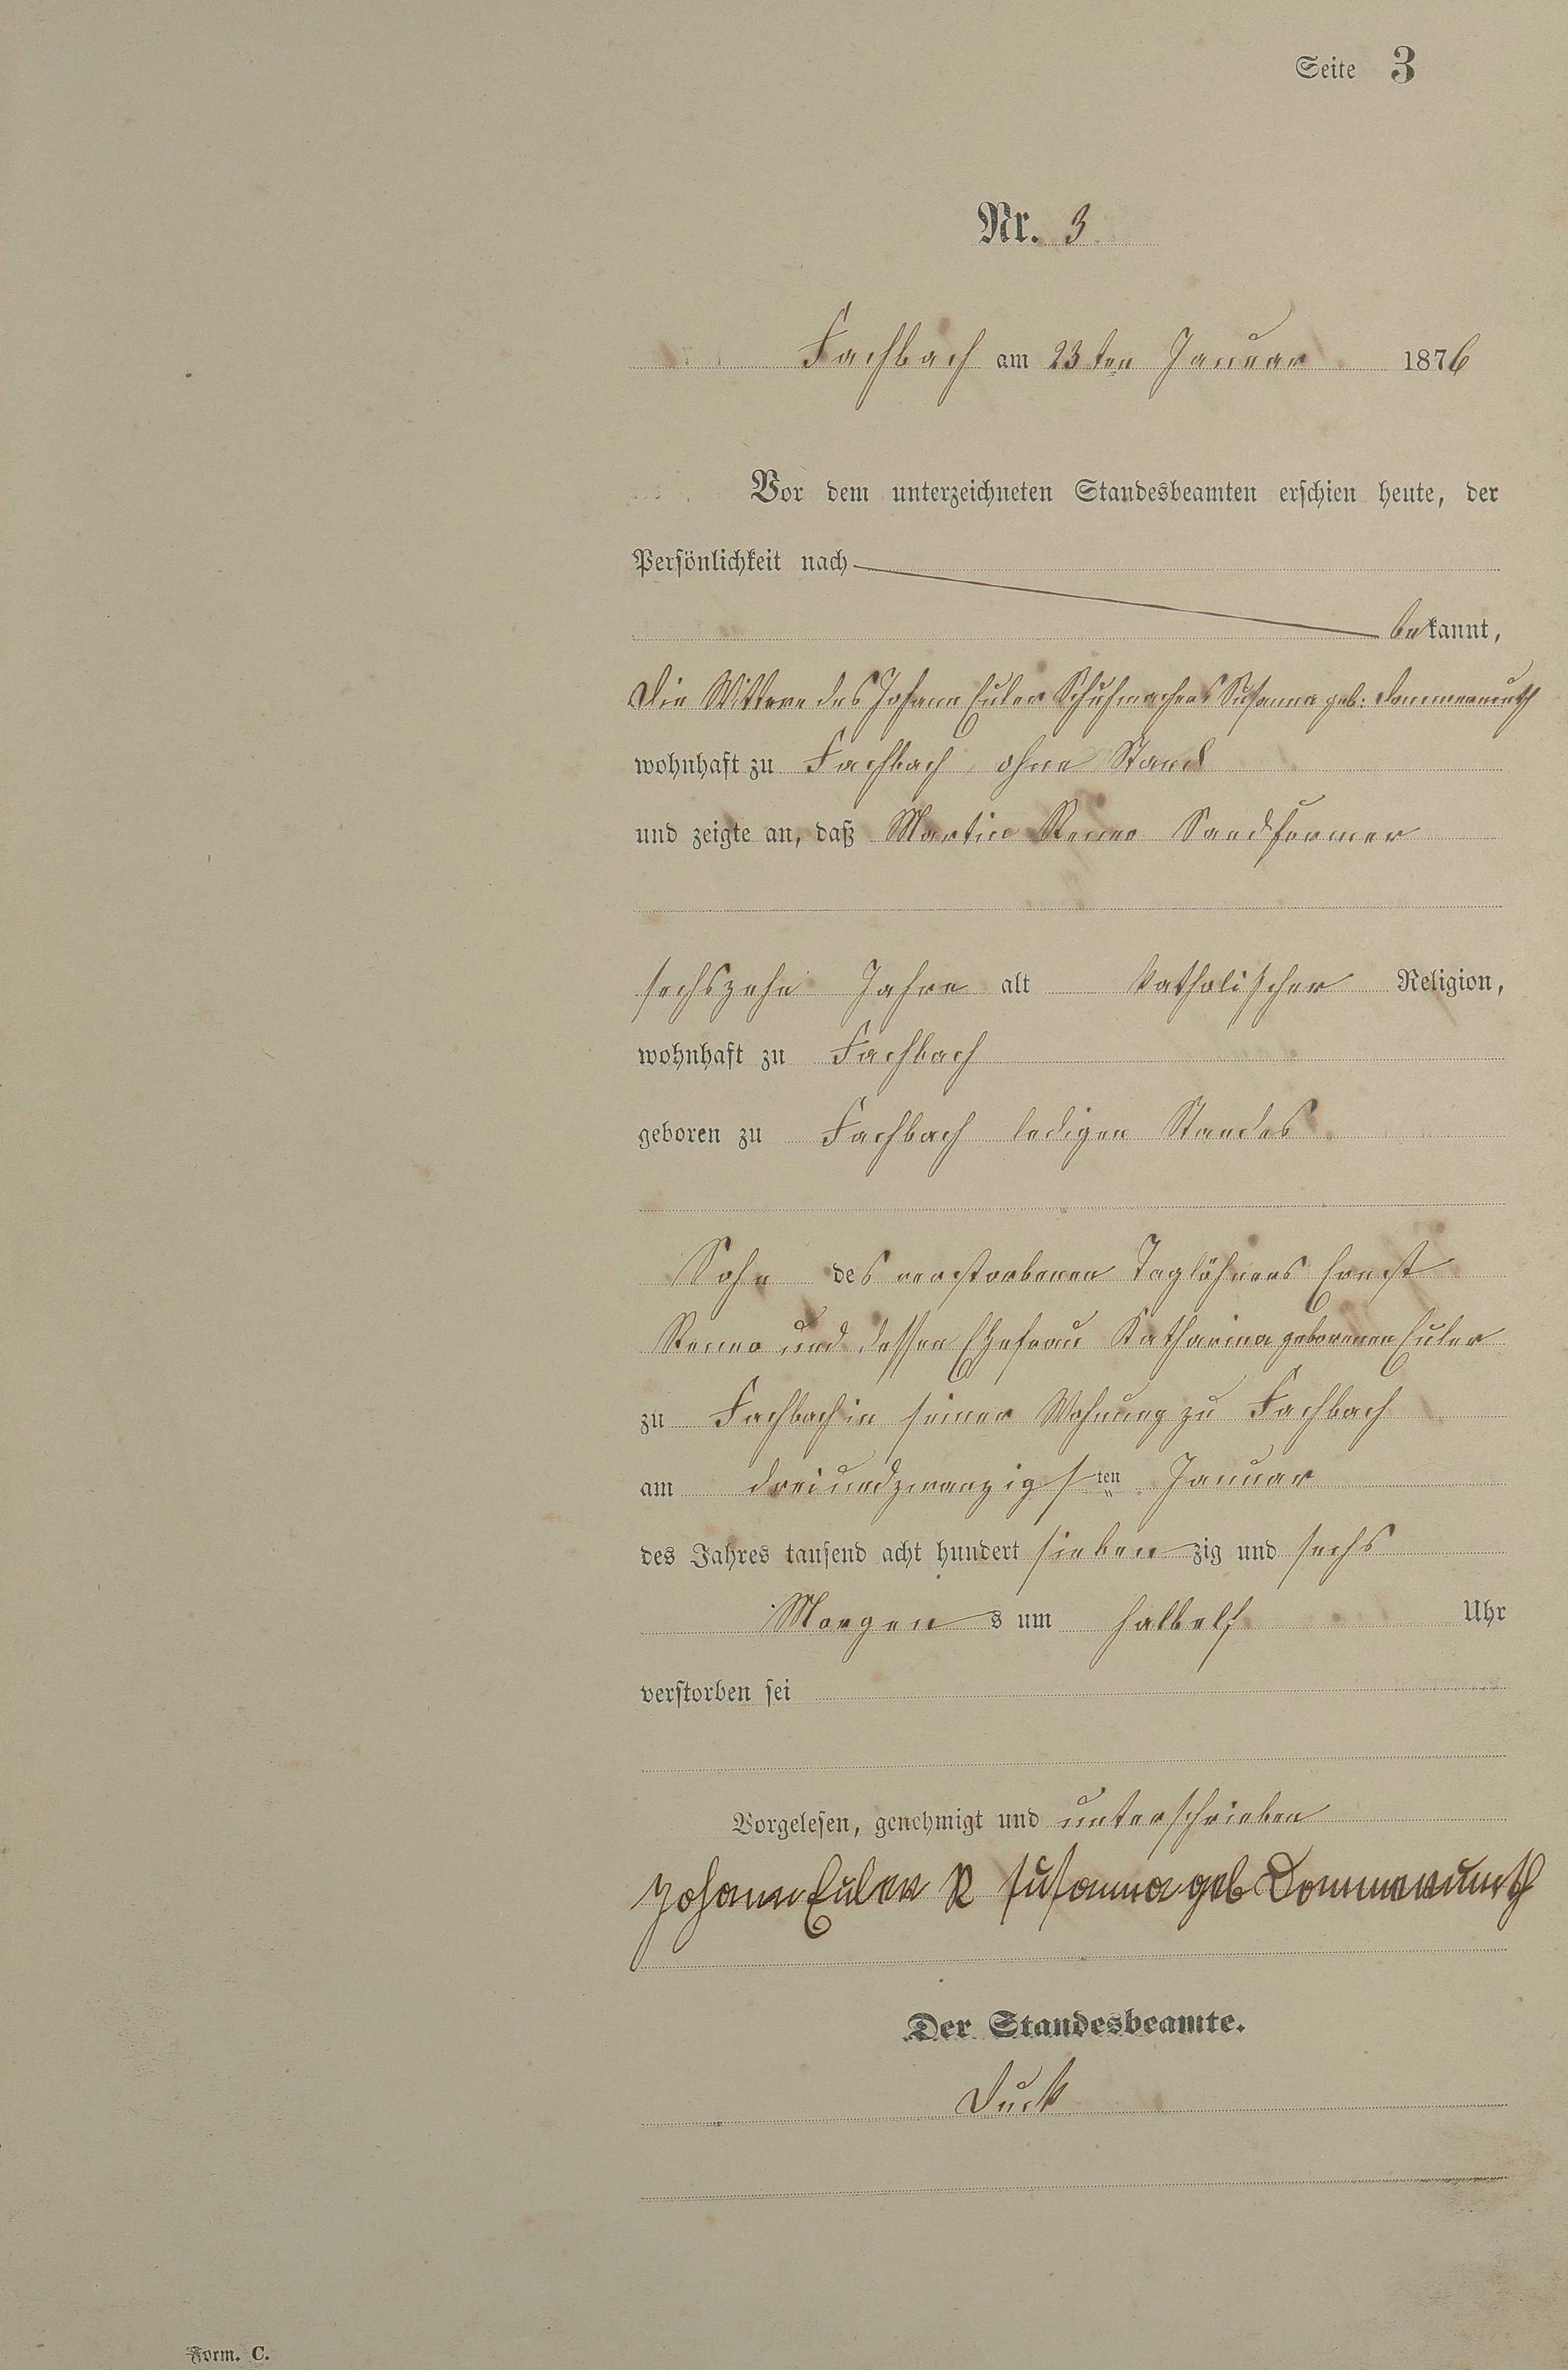 Seite 3
Nr. 3
Fachbach am 23ten Januar 1876
Vor dem unterzeichneten Standesbeamten erschien heute, der
Persönlichkeit nach
bekannt,
die Wittwe des Johann Euler Schuhmachers Susanna geb: Dommermuth
wohnhaft zu Fachbach ohne Stand
und zeigte an, daß Martin Sandformer
sechszehn Jahre alt katholischer Religion,
wohnhaft zu Fachbach
geboren zu Fachbach ledigen Standes
Sohn des verstorbenen Taglöhners Ernst
und dessen Ehefrau Katharina geborenen Euler
zu Fachbach in seiner Wohnung zu Fachbach
am dreiundzwanzigsten Januar
des Jahres tausend acht hundert siebenzig und sechs
Morgens um halbelf Uhr
verstorben sei
Vorgelesen, genehmigt und unterschrieben
Johann Euler Susanna geb Dommermuth
Der Standesbeamte.
Duck
Form. C.